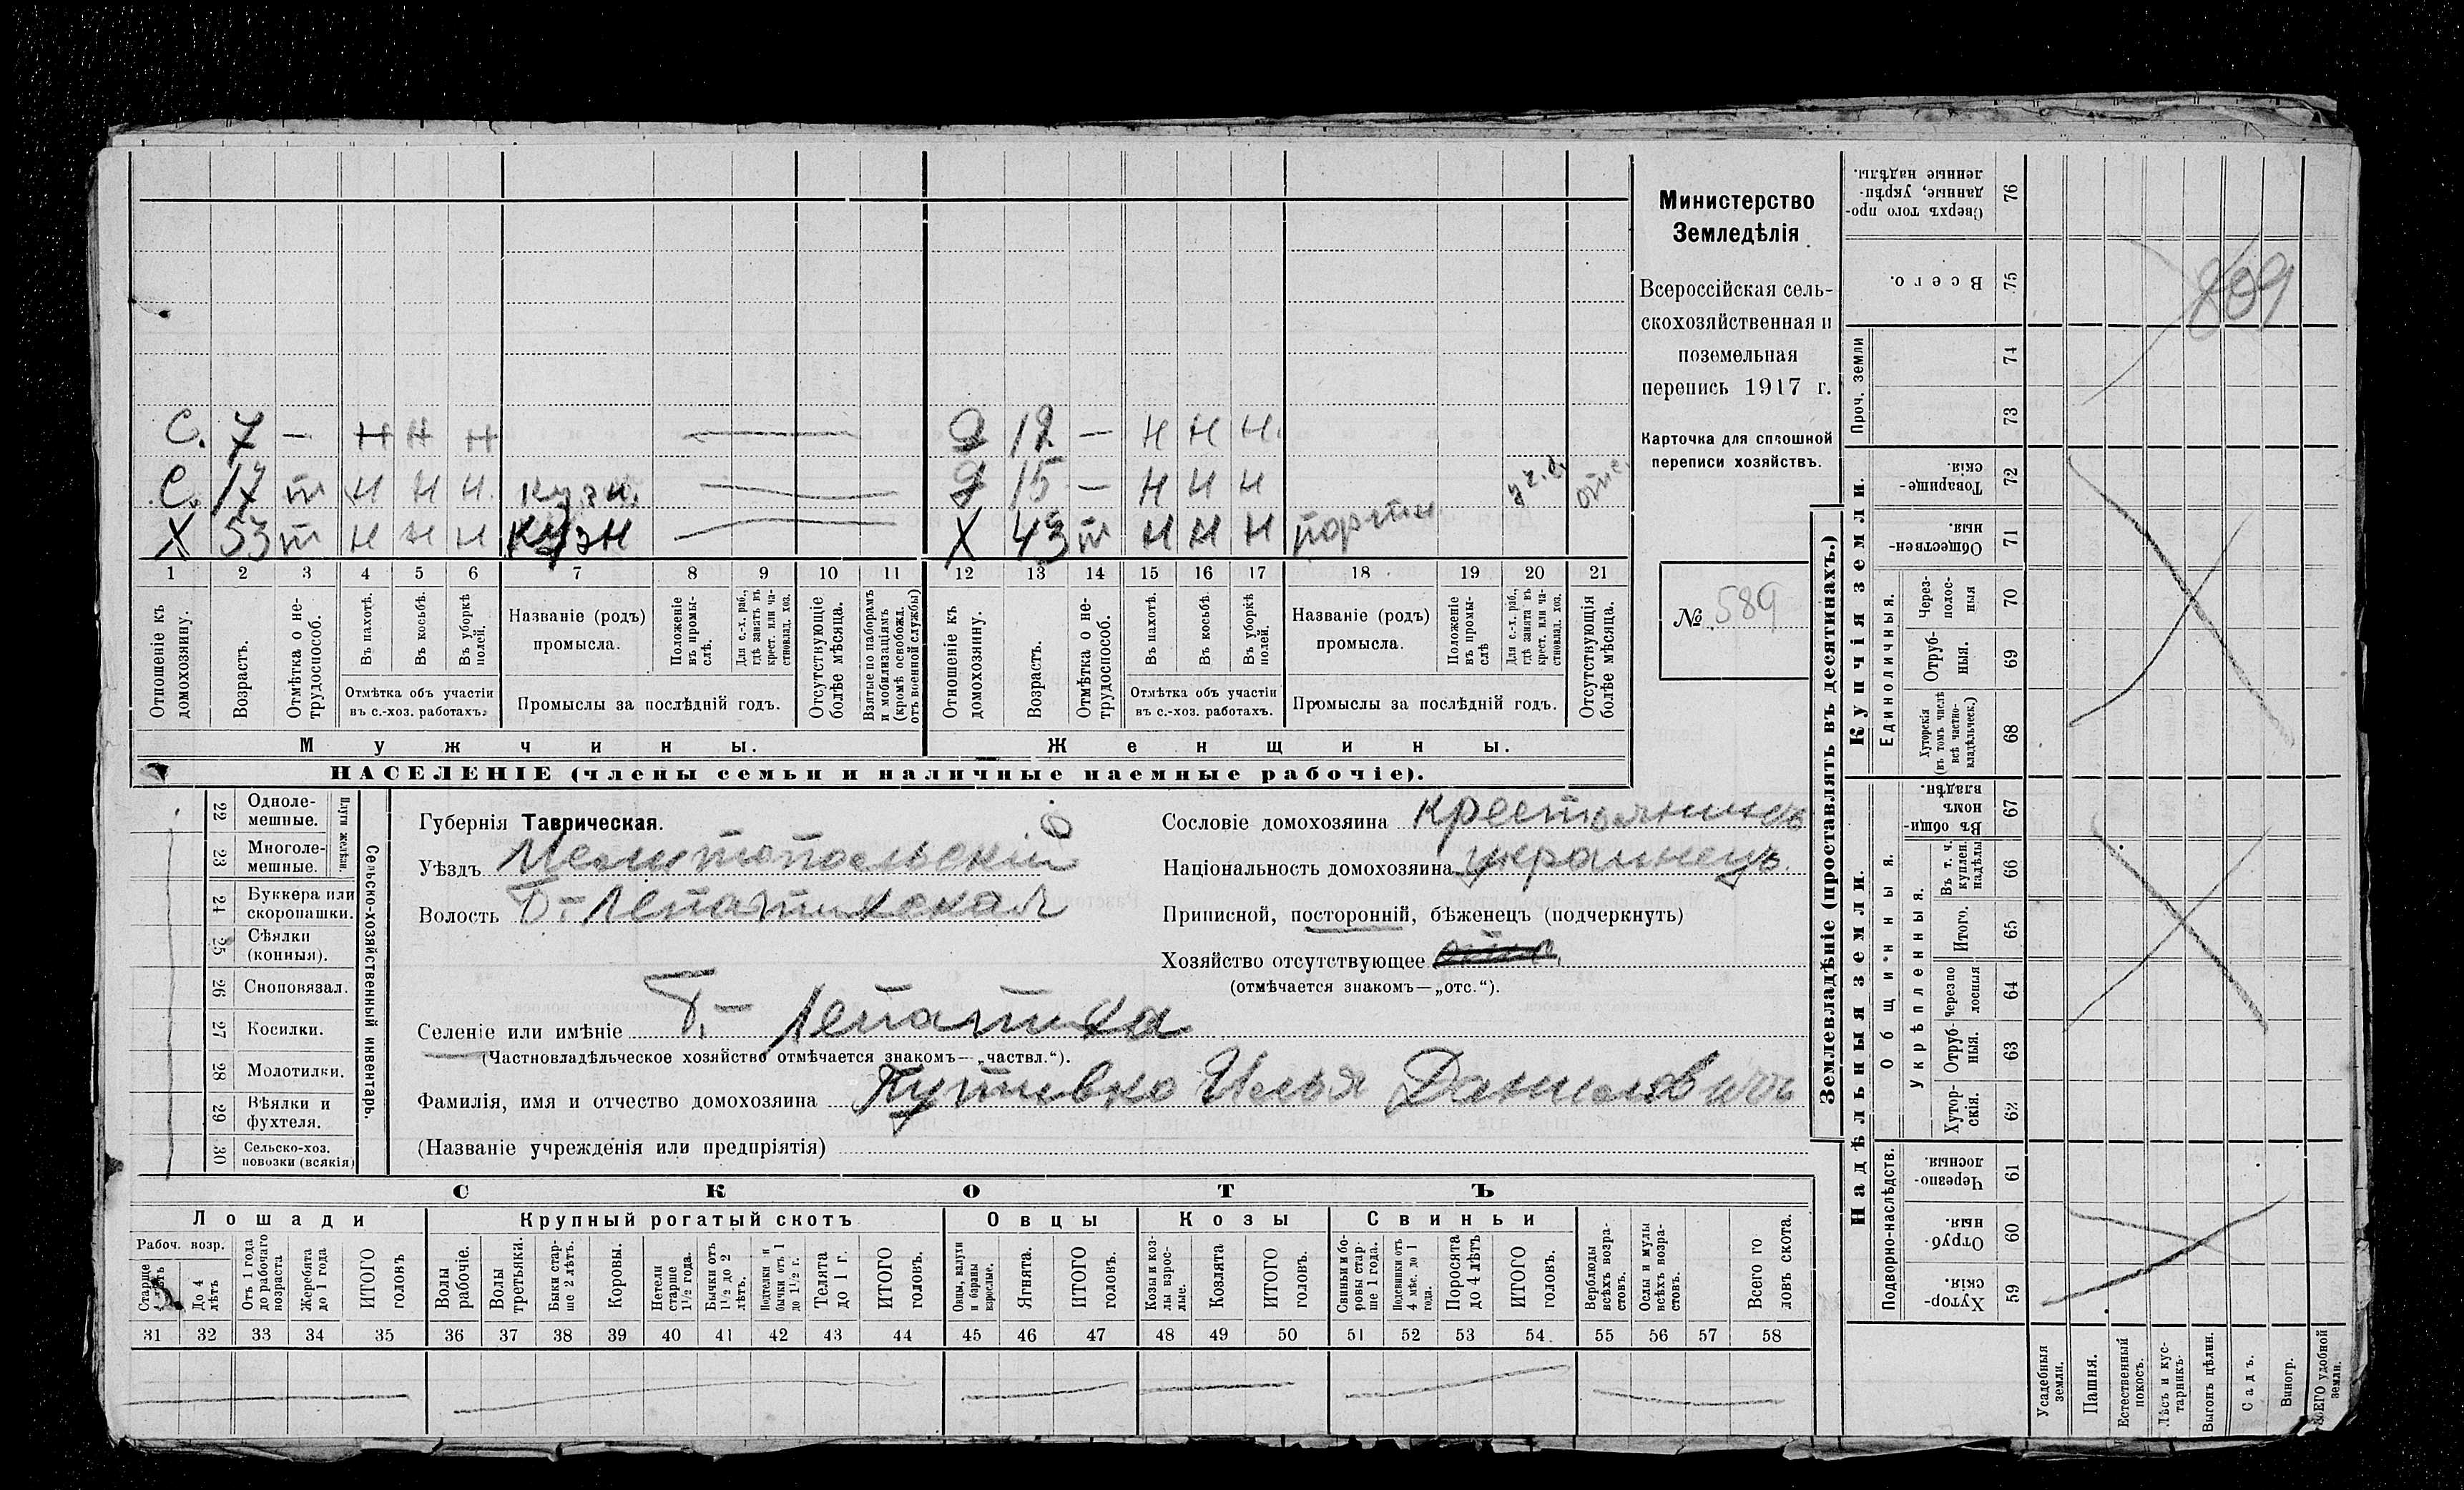 С. 7 — н н н — Д 12 — н н н
С. 17 т н н н кузн. — Д 15 — н н н уч. отс.
Х 53 т н н н кузн — Х 43 т н н н портн
1 2 3 4 5 6 7 8 9 10 11 12 13 14 15 16 17 18 19 20 21
Отношеніе къ домохозяину.
Возрастъ.
Отмѣтка о не-
трудоспособ.
Въ пахотѣ.
Въ косьбѣ.
Въ уборкѣ
полей.
Отмѣтка объ участіи
въ с.-хоз. работахъ.
Названіе (родъ)
промысла.
Положеніе
въ промы-
слѣ.
Для с.-х. раб.,
гдѣ занятъ въ
крест. или ча-
стновлад. хоз.
Промыслы за послѣдній годъ.
Отсутствующіе
болѣе мѣсяца.
Взятые по наборамъ
и мобилизаціямъ
(кромѣ освобожд.
отъ военной службы)
Отношеніе къ
домохозяину.
Возрастъ.
Отмѣтка о не-
трудоспособ.
Въ пахотѣ.
Въ косьбѣ.
Въ уборкѣ
полей.
Отмѣтка объ участіи
въ с.-хоз. работахъ.
Названіе (родъ)
промысла.
Положеніе
въ промы-
слѣ
Для с.-х. раб.,
гдѣ занята въ
крест. или ча-
стновлад. хоз.
Промыслы за послѣдній годъ.
Отсутствующія
болѣе мѣсяца.
Мужчины.
Женщины.
НАСЕЛЕНІЕ (члены семьи и наличные наемные рабочіе).
Министерство
Земледѣлія
Всероссійская сель-
скохозяйственная и
поземельная
перепись 1917 г.
Карточка для сплошной
переписи хозяйствъ.
№ 589
22 Одноле-
мешные.
23 Многоле-
мешные.
Плуги желѣзн.
24 Буккера или
скоропашки.
25 Сѣялки
(конныя).
26 Сноповязал.
27 Косилки.
28 Молотилки.
29 Вѣялки и
фухтеля.
30 Сельско-хоз.
повозки (всякія)
Сельско-хозяйственный инвентарь.
Губернія Таврическая.
Уѣздъ Мелитопольскій
Волость Б-Лепатихская
Селеніе или имѣніе Б.- Лепатиха
(Частновладѣльческое хозяйство отмѣчается знакомъ—„частвл.“).
Фамилія, имя и отчество домохозяина Путивко Илья Даниловичъ
(Названіе учрежденія или предпріятія)
Сословіе домохозяина крестьянинъ
Національность домохозяина украинецъ.
Приписной, посторонній, бѣженецъ (подчеркнуть)
Хозяйство отсутствующее
(отмѣчается знакомъ—„отс.“).
СКОТЪ
Лошади
Крупный рогатый скотъ
Овцы
Козы
Свиньи
Рабоч. возр.
Старше
4 лѣтъ
До 4
лѣтъ
Отъ 1 года
до рабочаго
возраста
Жеребята
до 1 года
ИТОГО
головъ
Волы
рабочіе.
Волы
третьяки.
Быки стар-
ше 2 лѣтъ.
Коровы.
Нетели
старше
1½ года.
Бычки отъ
1½ до 2
лѣтъ.
Подтелки и
бычки отъ 1
до 1½ г.
Телята
до 1 г.
ИТОГО
головъ.
Овцы, валухи
и бараны
взрослые.
Ягнята.
ИТОГО
головъ.
Козы и коз-
лы взрос-
лые.
Козлята
ИТОГО
головъ.
Свиньи и бо-
ровы стар-
ше 1 года.
Подсвинки отъ
4 мѣс. до 1
года.
Поросята
до 4 лѣтъ
ИТОГО
головъ.
Верблюды
всѣхъ возра-
стовъ.
Ослы и мулы
всѣхъ возра-
стовъ.
Всего го
ловъ скота.
31 32 33 34 35 36 37 38 39 40 41 42 43 44 45 46 47 48 49 50 51 52 53 54. 55 56 57 58
Землевладѣніе (проставлять въ десятинахъ.)
Надѣльныя земли.
Купчія земли.
Проч. земли
Подворно-наслѣдств.
Общинныя.
Укрѣпленныя.
Единоличныя.
76 Сверхъ того про-
данные, укрѣп-
ленные надѣлы.
75 Всего.
74
73
72 Товарище-
скія.
71 Обществен-
ныя
70 Через-
полос-
ныя
69 Отруб-
ныя.
68 Хуторскія
(въ томъ числѣ
всѣ частно-
владѣльческ.)
67 Въ общи-
номъ
владѣн.
66 Въ т. ч.
куплен.
надѣлы
65 Итого.
64 черезпо
лосныя
63 Отруб-
ныя.
62 Хутор-
скія.
61 Черезпо-
лосныя.
60 Отруб-
ныя
59 Хутор-
скія.
Усадебныя
земли.
Пашня.
Естественный
покосъ.
Лѣсъ и кус-
тарникъ.
Выгонъ цѣлин.
Садъ.
Виногр.
ВСЕГО удобной
земли.